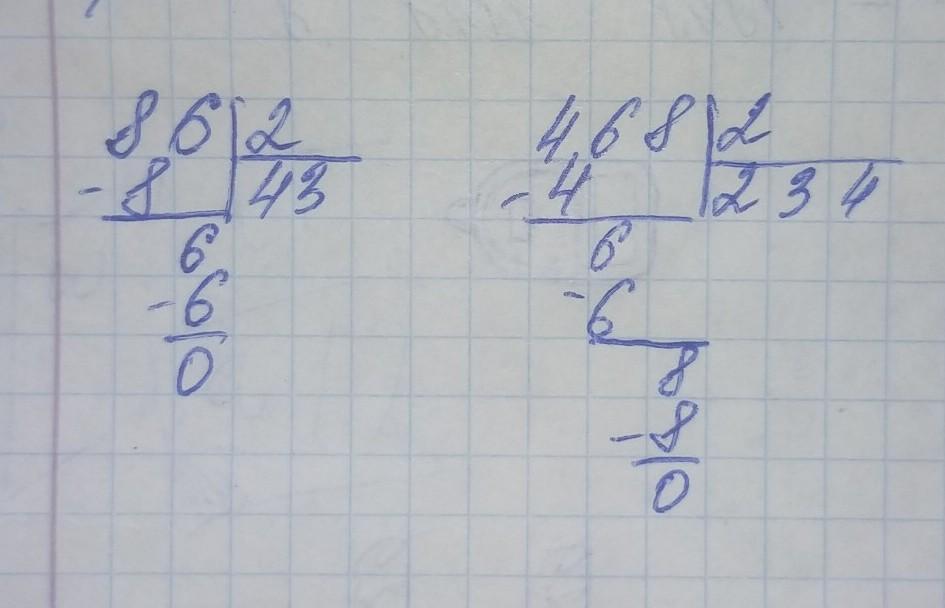 86 2
-8 43
6
-6
0
468 2
-4 234
6
-6
8
-8
0